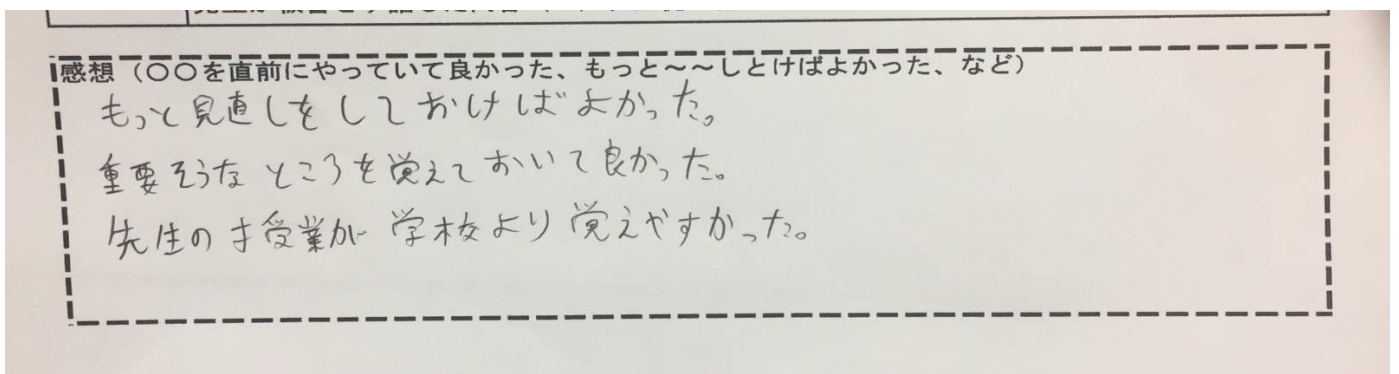 感想（〇〇を直前にやっていて良かった、もっと～～しとけばよかった、など）
もっと見直しをしておけばよかった。
重要そうなところを覚えておいて良かった。
先生の授業が学校より覚えやすかった。